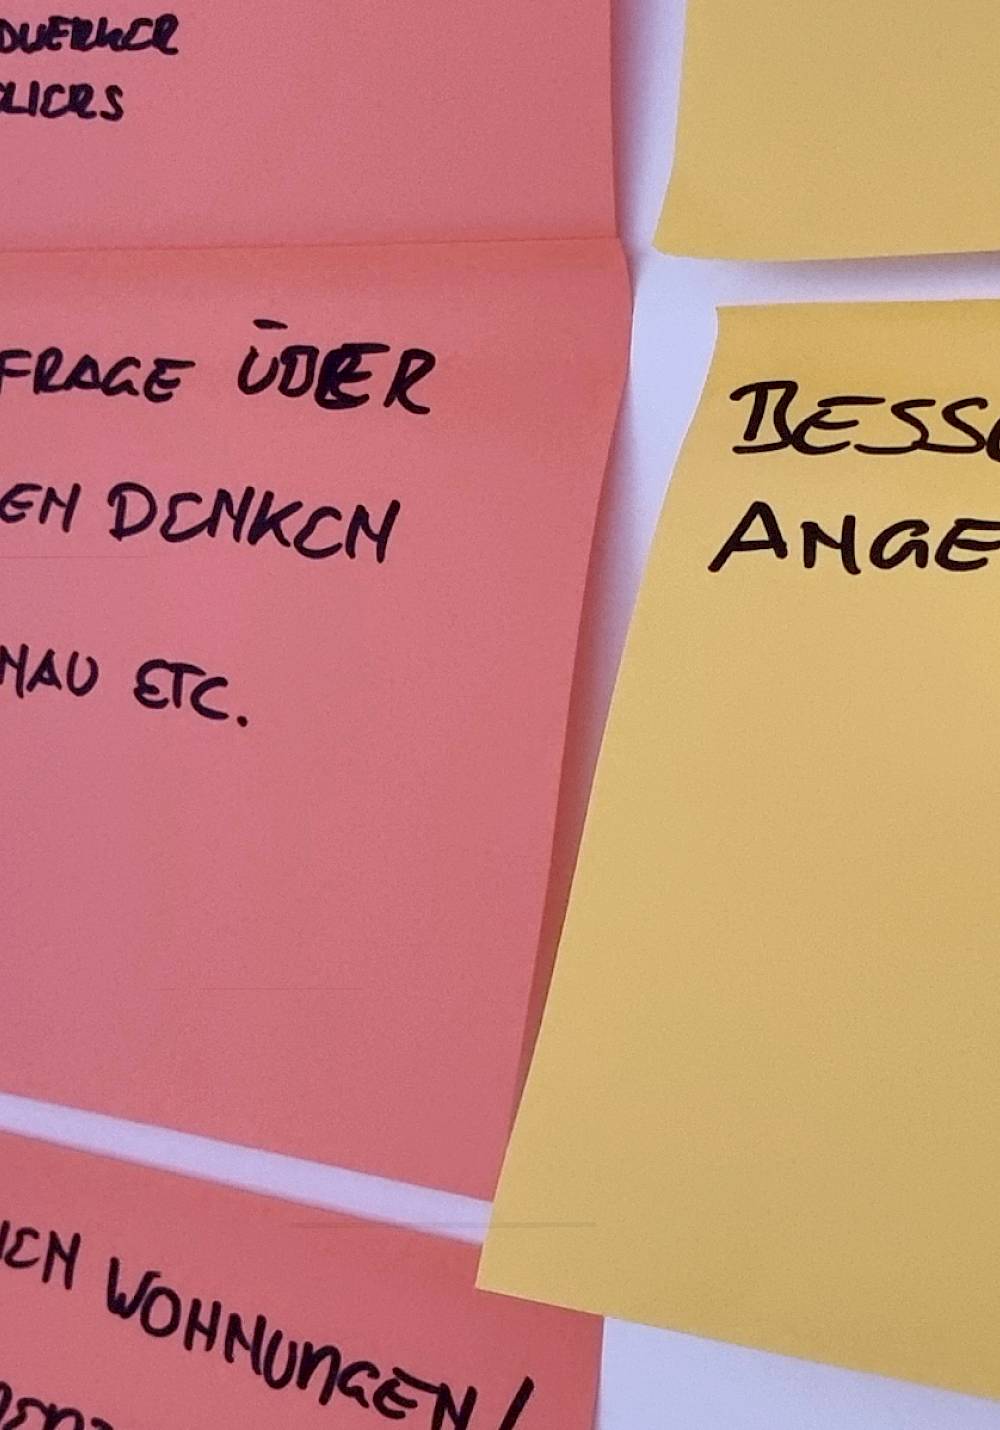 DWERKER
LIERS
FRAGE ÜBER
EN DENKEN
NAU ETC.
EN WOHNUNGEN/
BESSE
ANGE